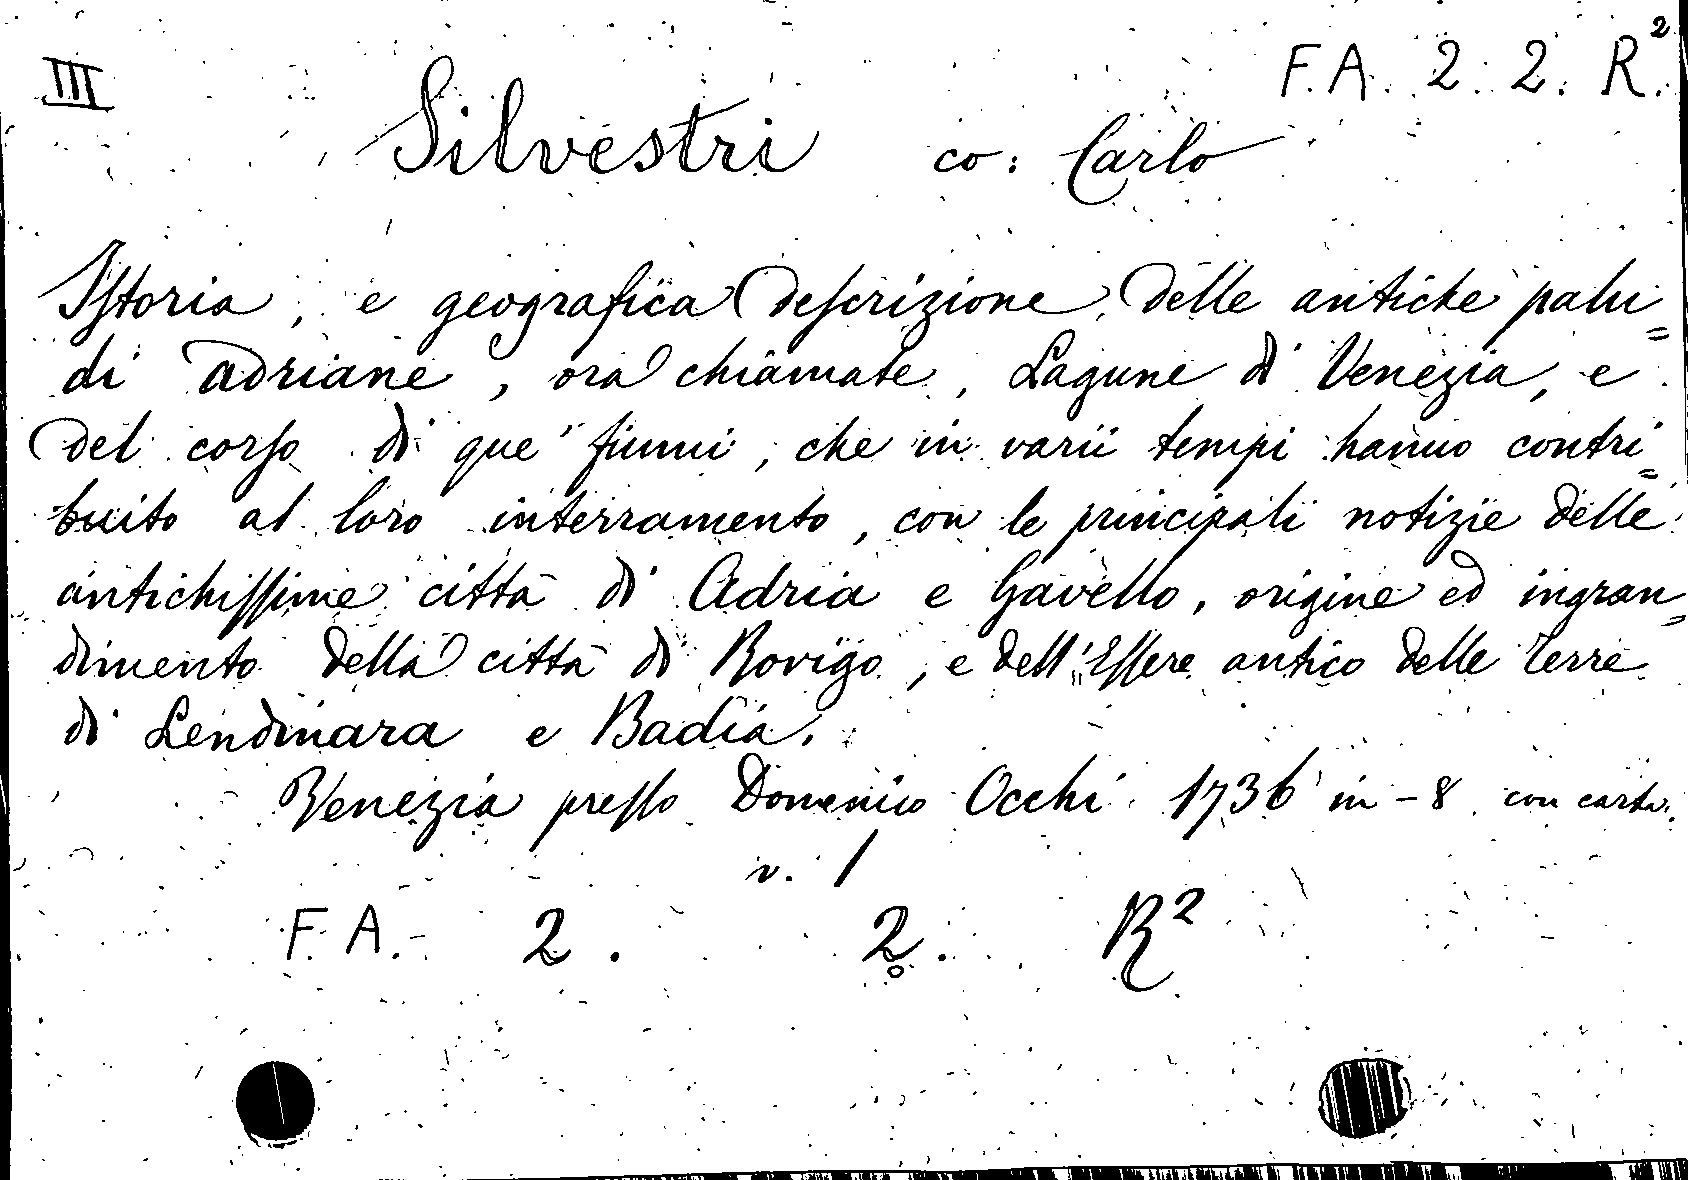 III
F. A. 2. 2. R.²
Silvestri co: Carlo
Istoria, e geografica descrizione delle antiche palu=
di adriane, ora chiamate, Lagune di Venezia, e
del corso di que' fiumi, che in varii tempi hanno contri=
buito al loro interramento, con le principali notizie delle
antichissime città di Adria e Gavello, origine ed ingran=
dimento della città di Rovigo, e dell'Essere antico delle terre
di Lendinara e Badia.
Venezia presso Domenico Occhi 1736 in-8 con carta.
v. 1
F. A. 2. 2. R²